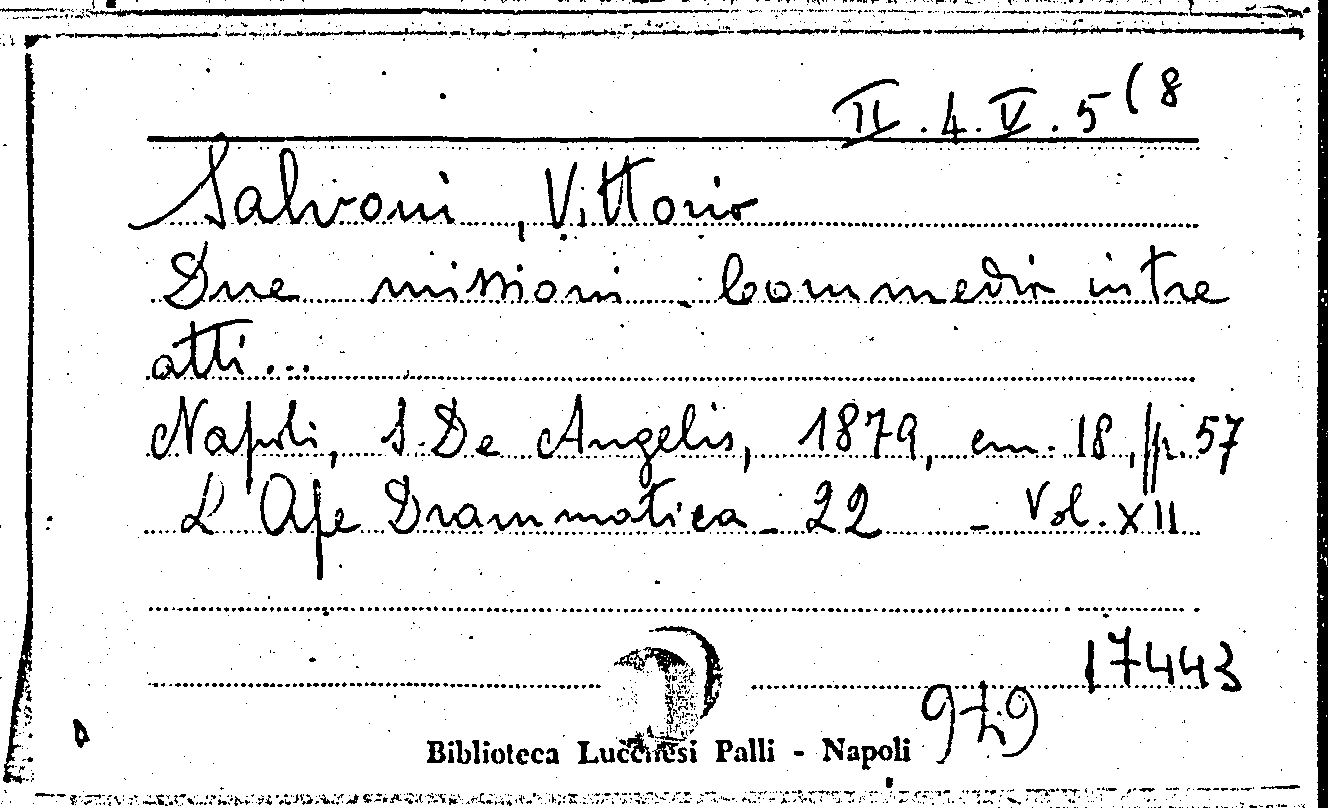 II.4.V.5(8
Salvoni, Vittorio
Due missioni - Commedia in tre
atti...
Napoli, S. De Angelis, 1879, cm. 18, pp. 57
L'Ape Drammatica - 22 - Vol. XII
17443
979
Biblioteca Lucchesi Palli - Napoli